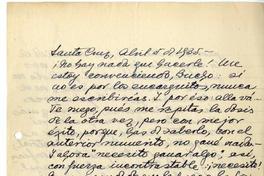 Santa Cruz, Abril 5 de 1935.—
¡No hay nada que hacerle! Me
estoy convenciendo, : si
no es por los encarguitos, nunca
me escribirías. Y por eso: allá va.
Te ruego, pues me repitas la dosis
de la otra vez, pero con mejor
éxito, porque, has de saberlo, con el
anterior numento, no gané nada.
Y ahora necesito ganar algo: así,
con fuerza incontrastable: ¡necesito!